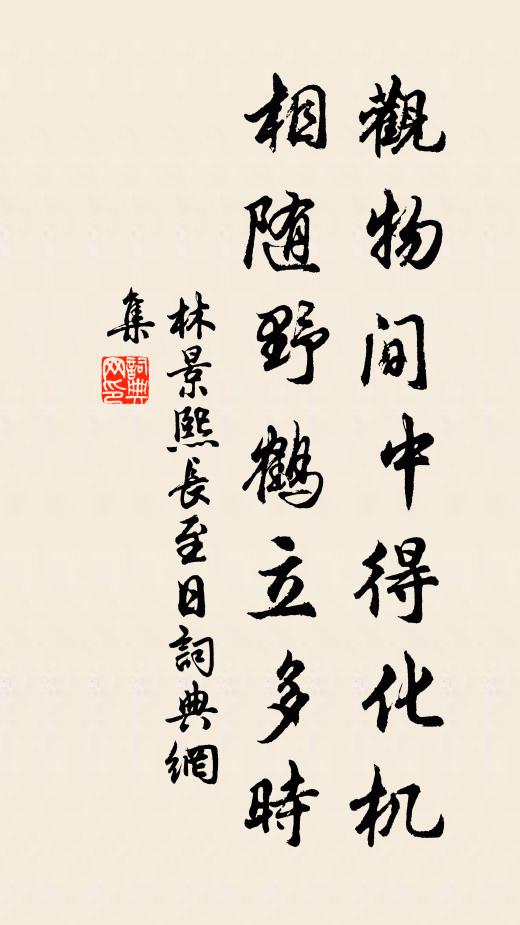 觀物间中得化机
相随野鶴立多時
林景熙長至日詞典網
集
詞典
网印